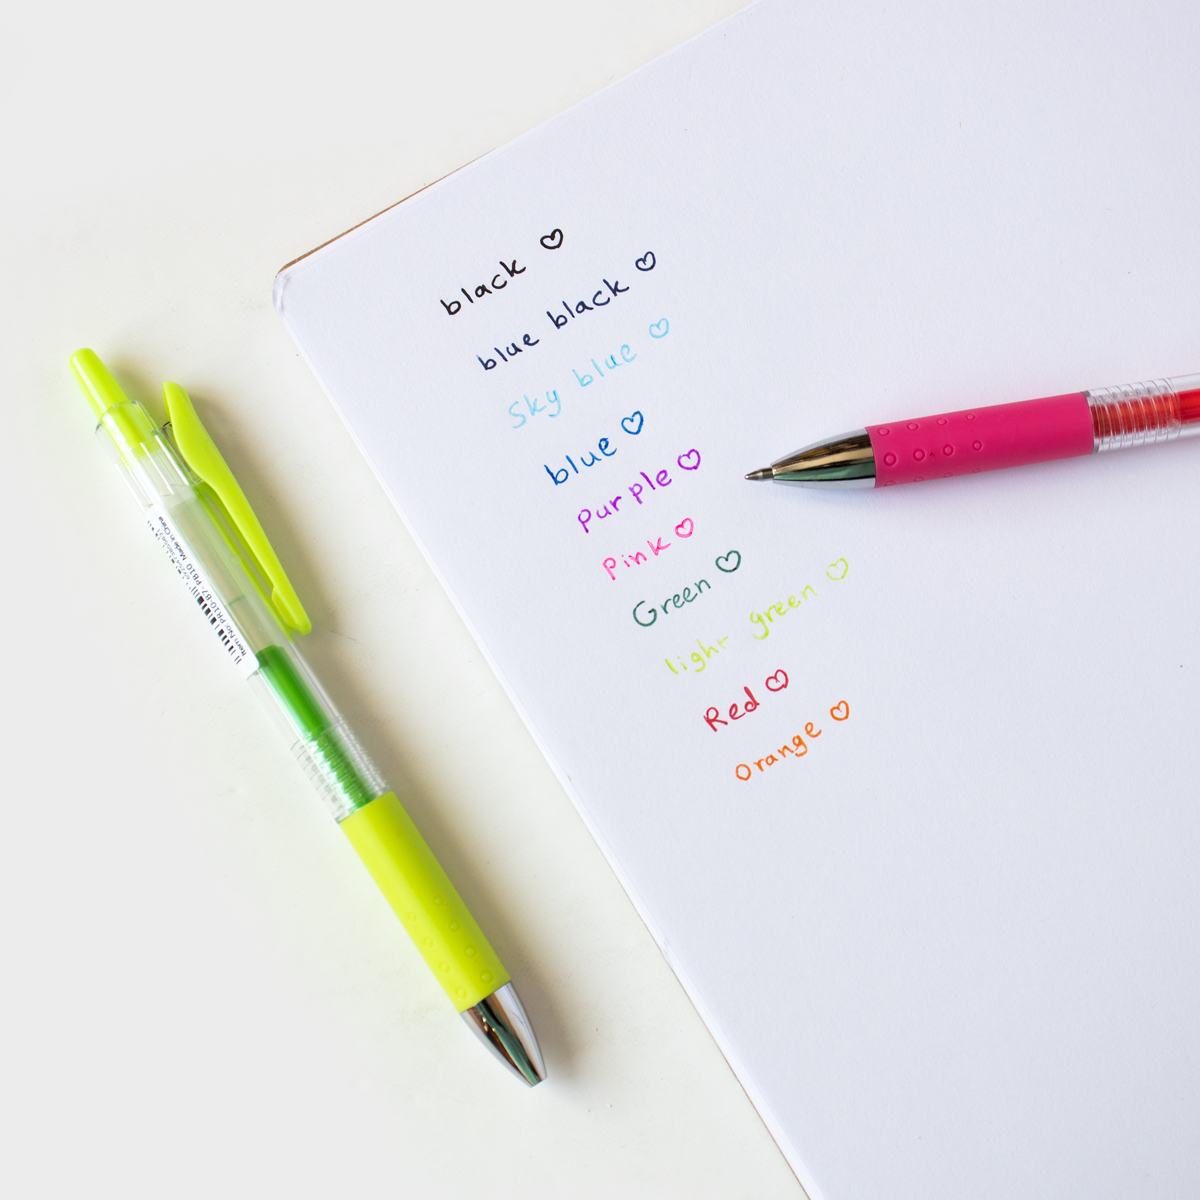 black ♡
blue black ♡
Sky blue ♡
blue ♡
Purple ♡
Pink ♡
Green ♡
light green ♡
Red ♡
Orange ♡
Made in China